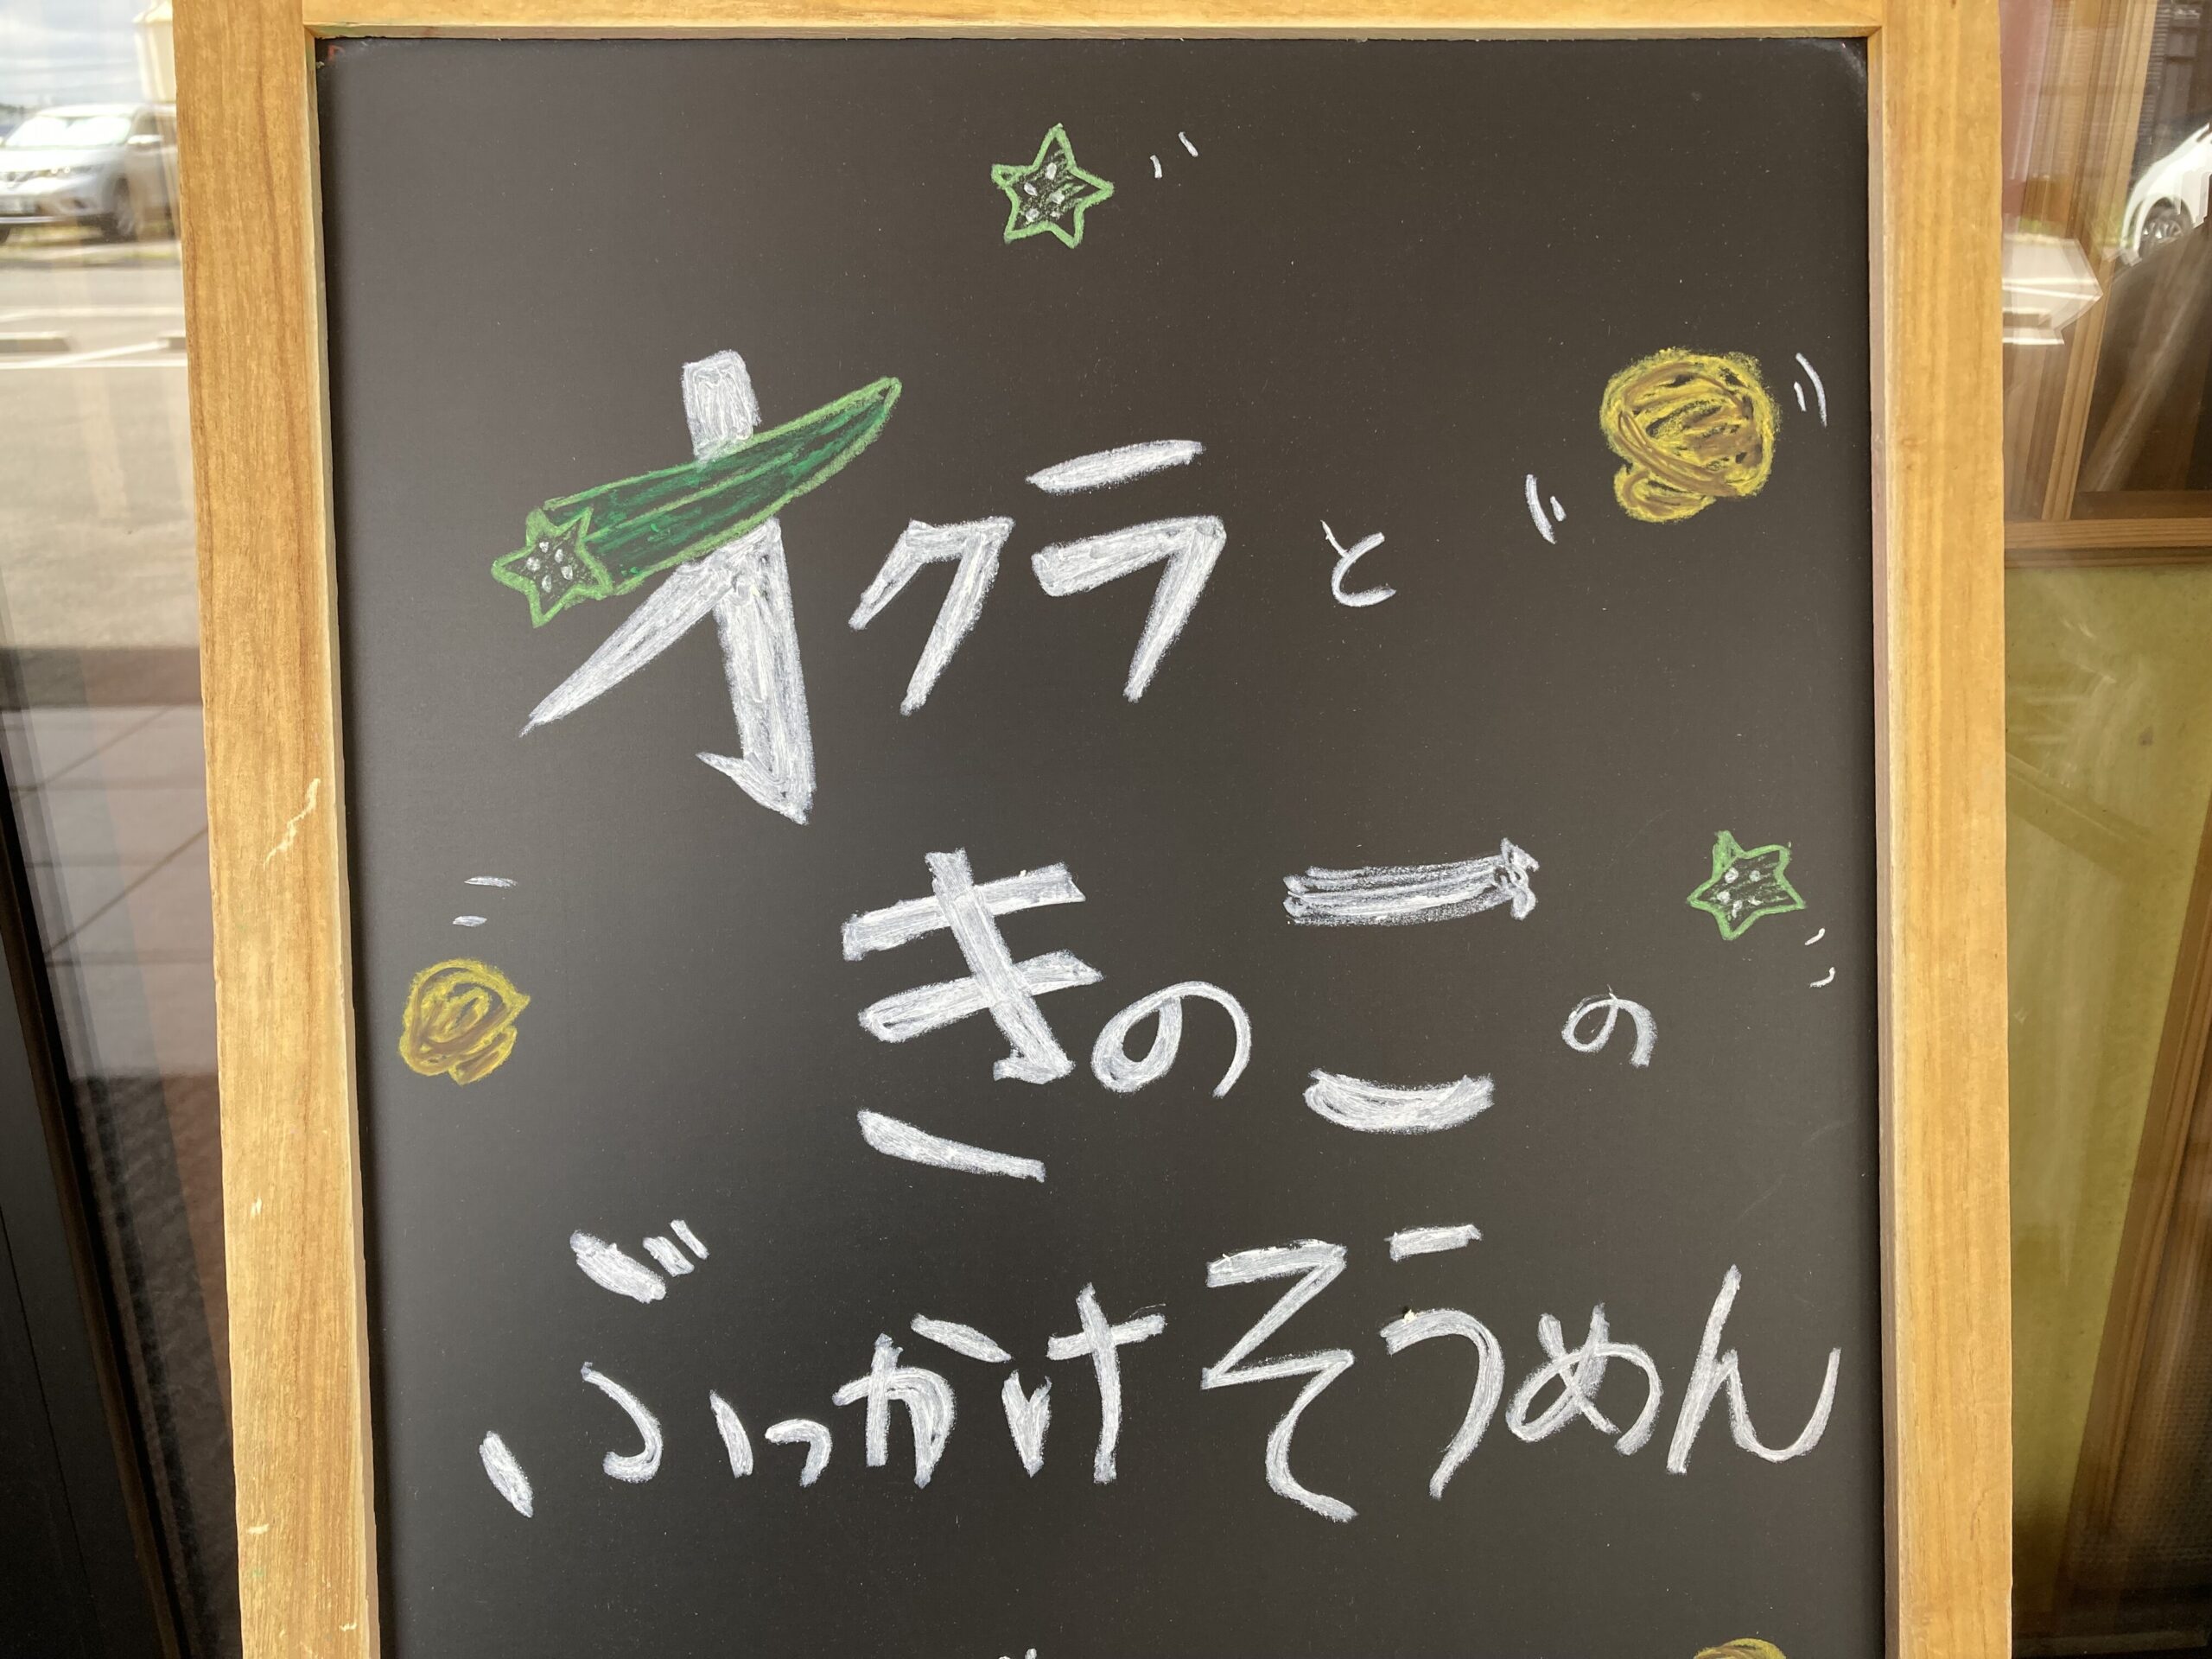 オクラと
きのこの
ぶっかけそうめん